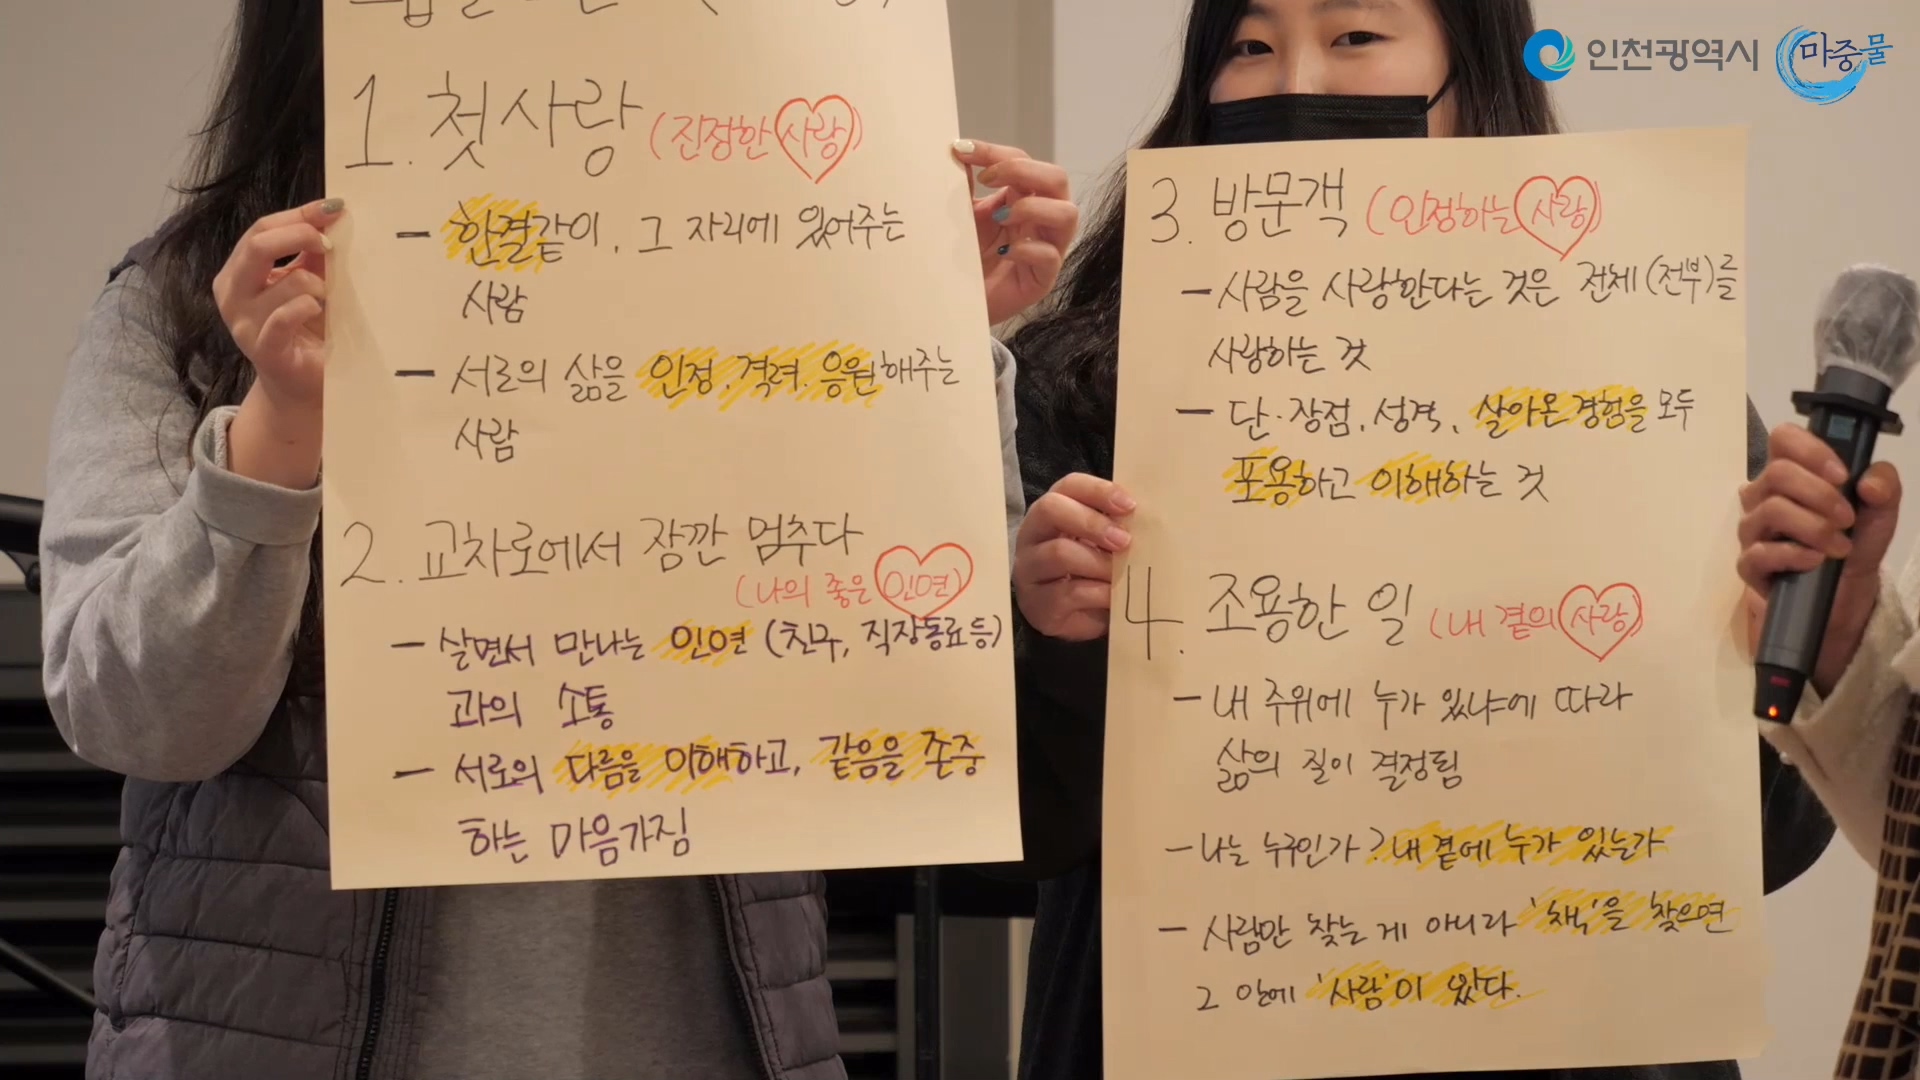 1. 첫사랑 (진정한 사랑)
- 한결같이, 그 자리에 있어주는
사람
- 서로의 삶을 인정, 격려, 응원해주는
사람
2. 교차로에서 잠깐 멈추다
(나의 좋은 인연)
- 살면서 만나는 인연 (친구, 직장동료 등)
과의 소통
- 서로의 다름을 이해하고, 같음을 존중
하는 마음가짐
인천광역시 마중물
3. 방문객 (인정하는 사랑)
- 사람을 사랑한다는 것은 전체(전부)를
사랑하는 것
- 단·장점, 성격, 살아온 경험을 모두
포용하고 이해하는 것
4. 조용한 일 (내 곁의 사랑)
- 내 주위에 누가 있냐에 따라
삶의 질이 결정됨
- 나는 누구인가? 내 곁에 누가 있는가
- 사람만 찾는 게 아니라 '책'을 찾으면
그 안에 '사람'이 있다.